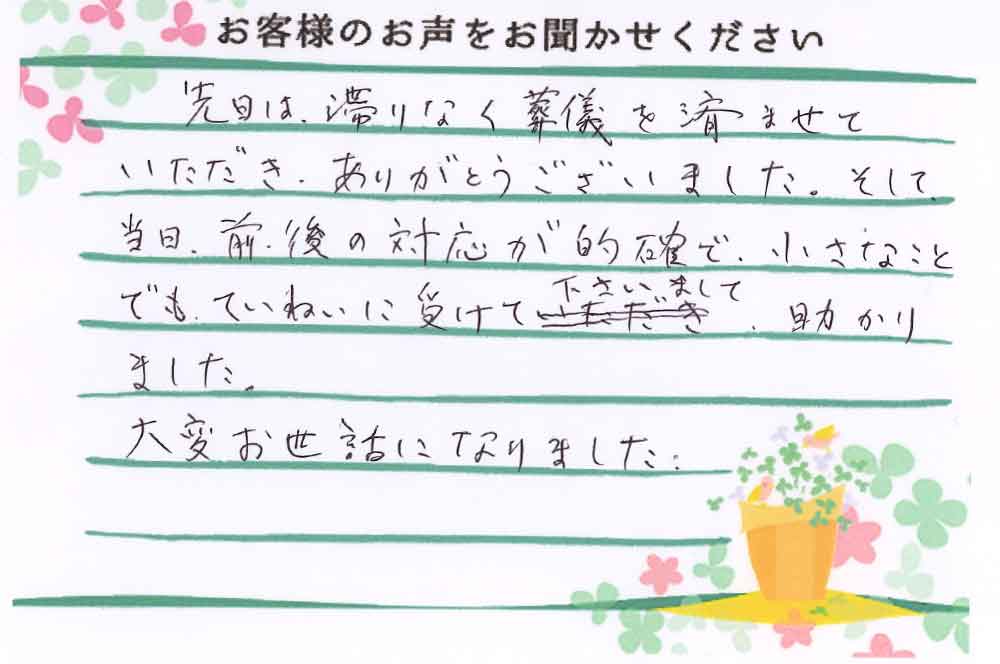 お客様のお声をお聞かせください
先日は、滞りなく葬儀を済ませて
いただき、ありがとうございました。そして、
当日、前、後の対応が的確で、小さなこと
でも、ていねいに受けて下さいまして、助かり
ました。
大変お世話になりました。